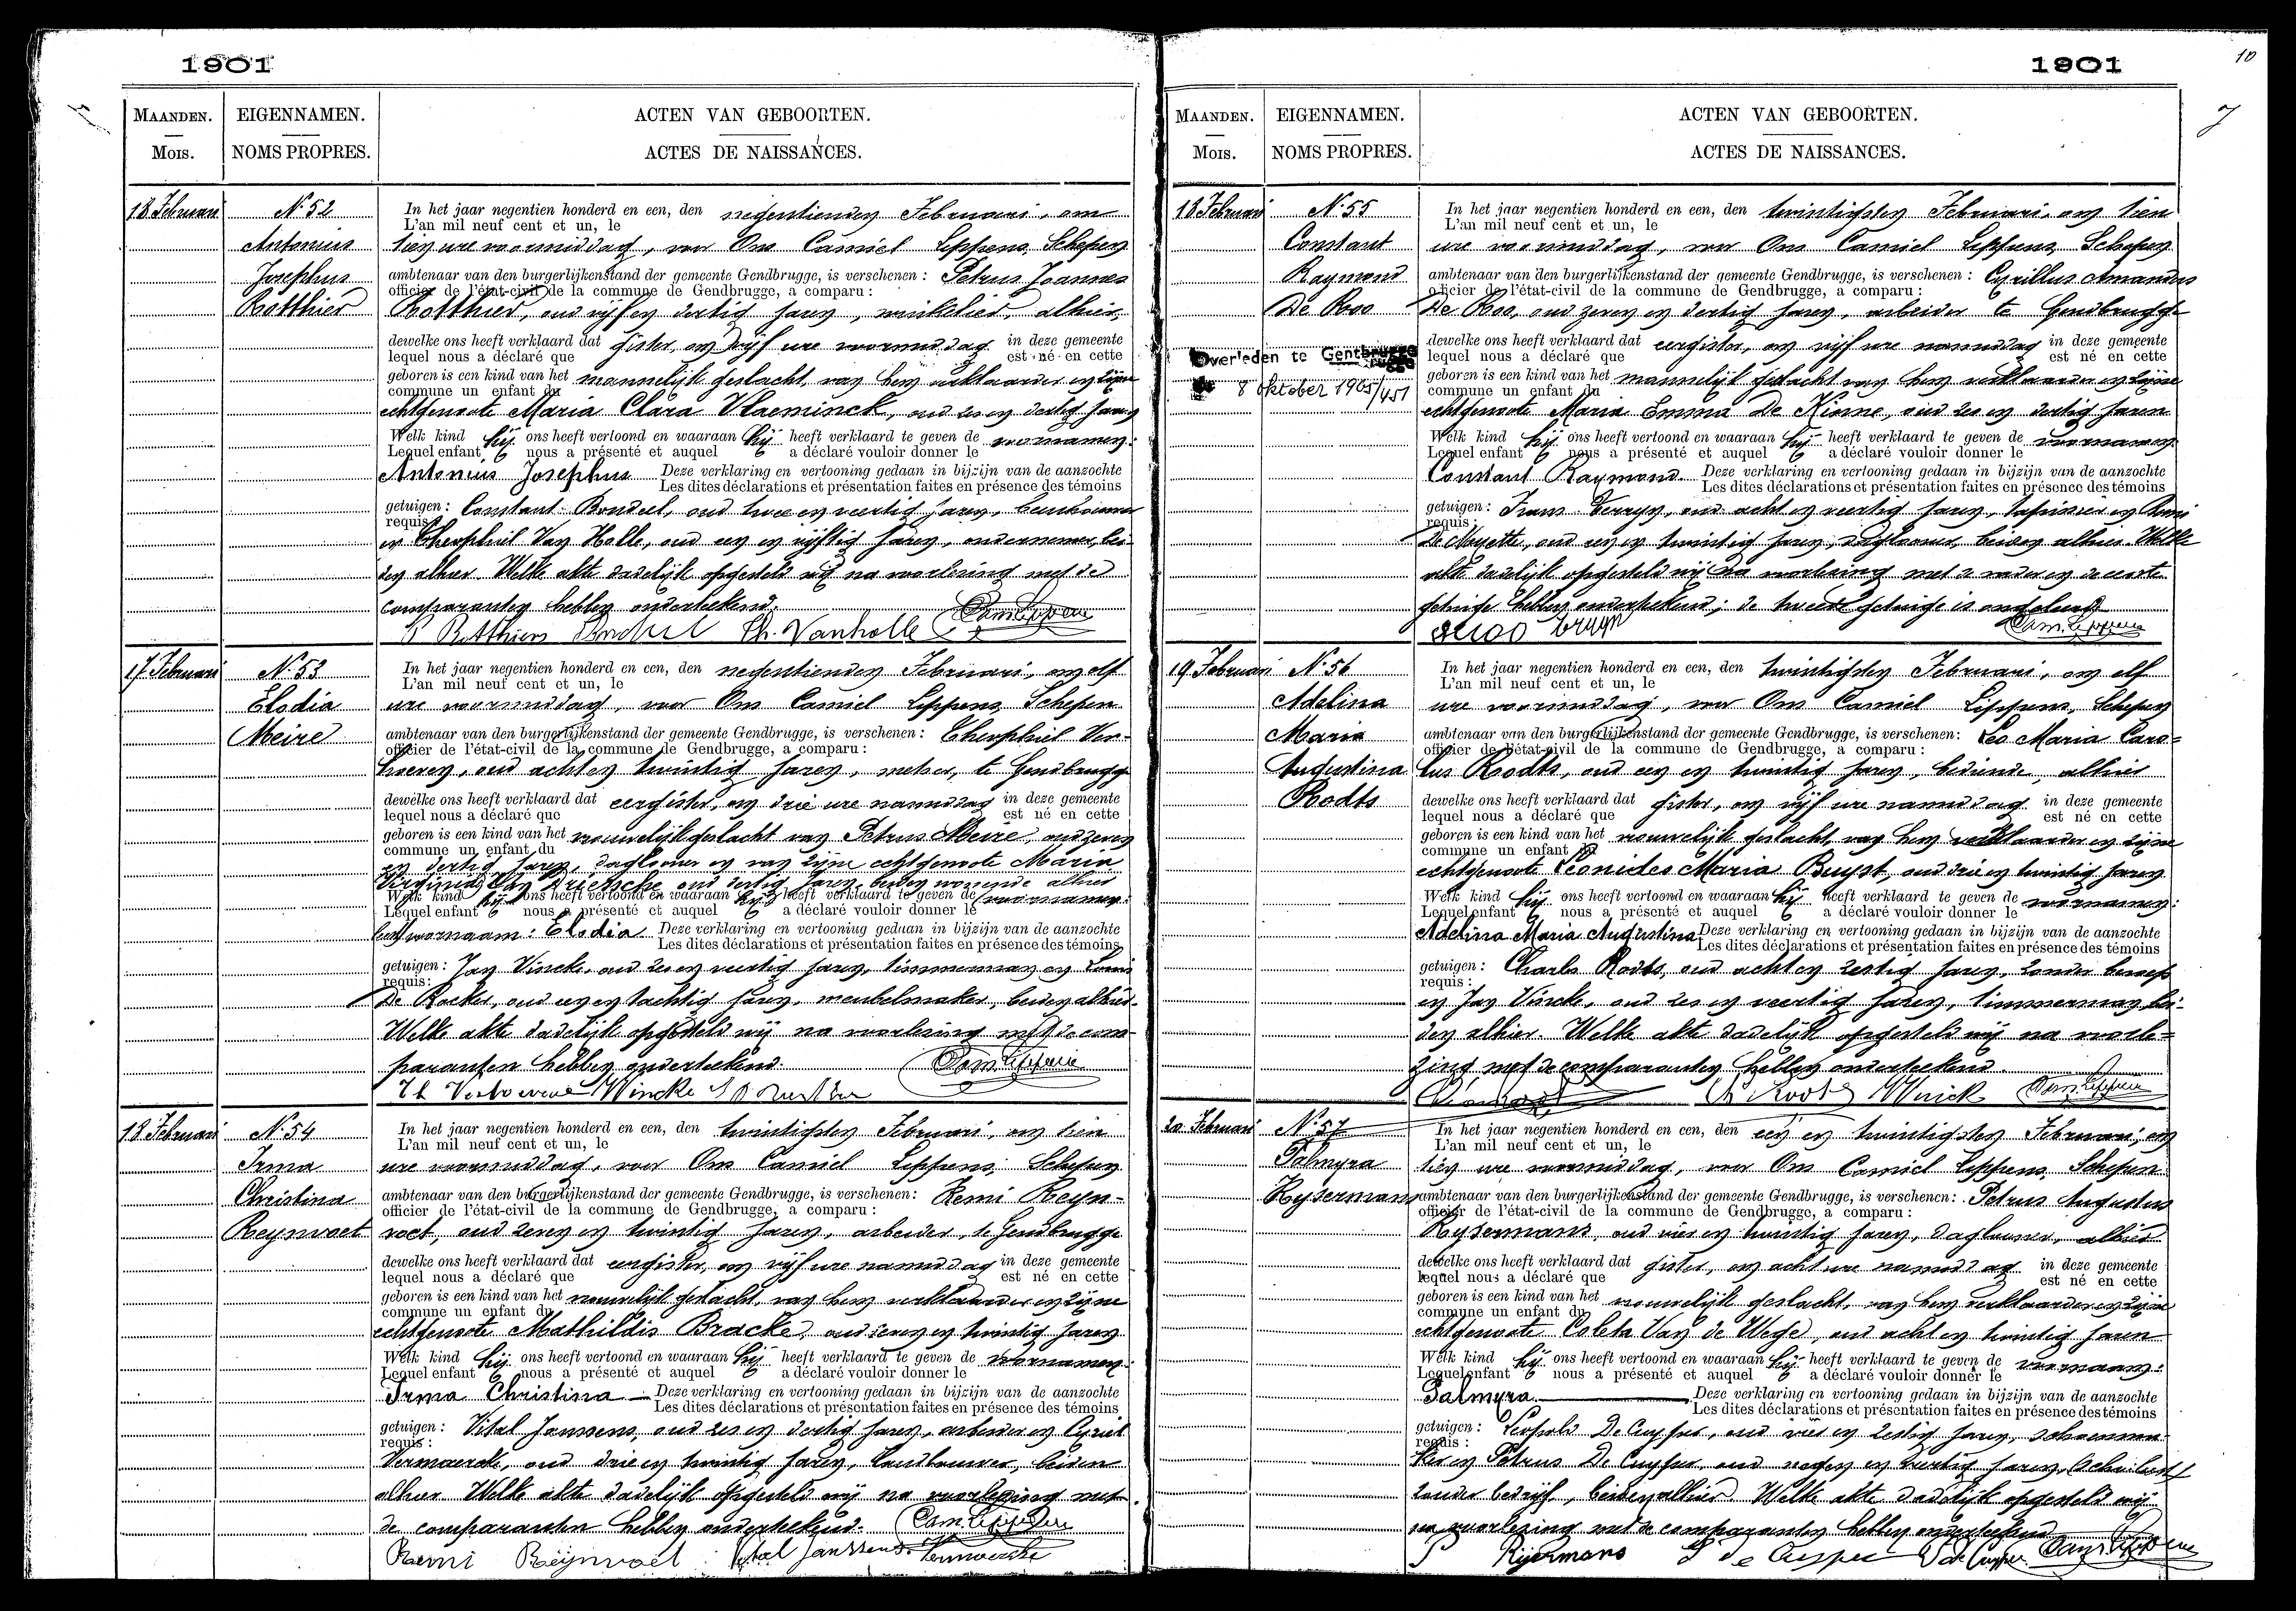 1901
MAANDEN.
Mois.
EIGENNAMEN.
NOMS PROPRES.
ACTEN VAN GEBOORTEN.
ACTES DE NAISSANCES.
18 Februari
N. 52
Antonius
Josephus
Rotthier
In het jaar negentien honderd en een, den negentienden Februari, om
L'an mil neuf cent et un, le
tien ure voormiddag, voor Ons Camiel Lippens, Schepen
ambtenaar van den burgerlijkenstand der gemeente Gendbrugge, is verschenen : Petrus Joannes
officier de l'état-civil de la commune de Gendbrugge, a comparu :
Rotthier, oud vijf en dertig jaren, winkelier, alhier,
dewelke ons heeft verklaard dat gister, om vijf ure voormiddag in deze gemeente
lequel nous a déclaré que est né en cette
geboren is een kind van het mannelijk geslacht, van hem verklaarder en zijne
commune un enfant du
echtgenoote Maria Clara Vlaeminck, oud zes en dertig jaren
Welk kind hij ons heeft vertoond en waaraan hij heeft verklaard te geven de voornamen:
Lequel enfant nous a présenté et auquel a déclaré vouloir donner le
Antonius Josephus Deze verklaring en vertooning gedaan in bijzijn van de aanzochte
Les dites déclarations et présentation faites en présence des témoins
getuigen : Constant Bondeel, oud twee en veertig jaren,
requis :
en Theophiel Van Holle, oud een en vijftig jaren, ondernemer, bei-
den alhier. Welke akte dadelijk opgesteld wij na voorlezing met de
comparanten hebben onderteekend.
P Rotthiers Th. Vanholle Cam. Lippens
17 Februari
N. 53
Elodia
Meire
In het jaar negentien honderd en een, den negentienden Februari, om elf
L'an mil neuf cent et un, le
ure voormiddag, voor Ons Camiel Lippens, Schepen
ambtenaar van den burgerlijkenstand der gemeente Gendbrugge, is verschenen : Theophiel Ver-
officier de l'état-civil de la commune de Gendbrugge, a comparu :
hoeven, oud acht en twintig jaren, metser, te Gendbrugge
dewelke ons heeft verklaard dat eergister, om drie ure namiddag in deze gemeente
lequel nous a déclaré que est né en cette
geboren is een kind van het vrouwelijk geslacht van Petrus Meire, oud zeven
commune un enfant du
en dertig jaren, daglooner en van zijne echtgenoote Maria
Virginia Van Driessche oud dertig jaren, beiden wonende alhier
Welk kind hij ons heeft vertoond en waaraan hij heeft verklaard te geven de voornamen:
Lequel enfant nous a présenté et auquel a déclaré vouloir donner le
voornaam: Elodia Deze verklaring en vertooning gedaan in bijzijn van de aanzochte
Les dites déclarations et présentation faites en présence des témoins
getuigen : Jan Vincke, oud zes en veertig jaren, timmerman en Louis
requis :
De Backer, oud een en tachtig jaren, meubelmaker, beiden alhier.
Welke akte dadelijk opgesteld wij na voorlezing met de com-
paranten hebben onderteekend.
Th Verhoeven Vincke Cam. Lippens
18 Februari
N. 54
Irma
Christina
Reynvoet
In het jaar negentien honderd en een, den twintigsten Februari, om tien
L'an mil neuf cent et un, le
ure voormiddag, voor Ons Camiel Lippens, Schepen
ambtenaar van den burgerlijkenstand der gemeente Gendbrugge, is verschenen : Remi Reyn-
officier de l'état-civil de la commune de Gendbrugge, a comparu :
voet, oud zeven en twintig jaren, arbeider, te Gendbrugge
dewelke ons heeft verklaard dat eergister, om vijf ure namiddag in deze gemeente
lequel nous a déclaré que est né en cette
geboren is een kind van het vrouwelijk geslacht, van hem verklaarder en zijne
commune un enfant du
echtgenoote Mathildis Bracke, oud zeven en twintig jaren
Welk kind hij ons heeft vertoond en waaraan hij heeft verklaard te geven de voornamen:
Lequel enfant nous a présenté et auquel a déclaré vouloir donner le
Irma Christina Deze verklaring en vertooning gedaan in bijzijn van de aanzochte
Les dites déclarations et présentation faites en présence des témoins
getuigen : Vital Janssens, oud zes en dertig jaren, arbeider en Cyriel
requis :
Vermaercke, oud drie en twintig jaren, landbouwer, beiden
alhier. Welke akte dadelijk opgesteld wij na voorlezing met
de comparanten hebben onderteekend. Cam. Lippens
Remi Reijnvoet Vital Janssens
1901
10
7
MAANDEN.
Mois.
EIGENNAMEN.
NOMS PROPRES.
ACTEN VAN GEBOORTEN.
ACTES DE NAISSANCES.
18 Februari
N. 55
Constant
Raymond
De Roo
Overleden te Gentbrugge
de 8 oktober 1965/451
In het jaar negentien honderd en een, den twintigsten Februari, om tien
L'an mil neuf cent et un, le
ure voormiddag, voor Ons Camiel Lippens, Schepen
ambtenaar van den burgerlijkenstand der gemeente Gendbrugge, is verschenen : Cyrillus Amandus
officier de l'état-civil de la commune de Gendbrugge, a comparu :
De Roo, oud zeven en dertig jaren, arbeider te Gendbrugge
dewelke ons heeft verklaard dat eergister, om vijf ure namiddag in deze gemeente
lequel nous a déclaré que est né en cette
geboren is een kind van het mannelijk geslacht van hem verklaarder en zijne
commune un enfant du
echtgenoote Maria Emma De Kinne, oud zes en dertig jaren
Welk kind hij ons heeft vertoond en waaraan hij heeft verklaard te geven de voornamen
Lequel enfant nous a présenté et auquel a déclaré vouloir donner le
Constant Raymond Deze verklaring en vertooning gedaan in bijzijn van de aanzochte
Les dites déclarations et présentation faites en présence des témoins
getuigen : Frans oud acht en veertig jaren, en Remi
requis :
oud een en twintig jaren, daglooner, beiden alhier. Welke
akte dadelijk opgesteld wij na voorlezing met de vader en de eerste
getuige hebben onderteekend; de tweede getuige is ongeleerd
Cam. Lippens
19 Februari
N. 56
Adelina
Maria
Augustina
Rodts
In het jaar negentien honderd en een, den twintigsten Februari, om elf
L'an mil neuf cent et un, le
ure voormiddag, voor Ons Camiel Lippens, Schepen
ambtenaar van den burgerlijkenstand der gemeente Gendbrugge, is verschenen : Leo Maria Caro-
officier de l'état-civil de la commune de Gendbrugge, a comparu :
lus Rodts, oud een en twintig jaren, bediende, alhier
dewelke ons heeft verklaard dat gister, om vijf ure namiddag in deze gemeente
lequel nous a déclaré que est né en cette
geboren is een kind van het vrouwelijk geslacht, van hem verklaarder en zijne
commune un enfant du
echtgenoote Leonides Maria Buyst, oud drie en twintig jaren
Welk kind hij ons heeft vertoond en waaraan hij heeft verklaard te geven de voornamen:
Lequel enfant nous a présenté et auquel a déclaré vouloir donner le
Adelina Maria Augustina Deze verklaring en vertooning gedaan in bijzijn van de aanzochte
Les dites déclarations et présentation faites en présence des témoins
getuigen : Charles Rodts, oud acht en zestig jaren, zonder beroep
requis :
en Jan Vincke, oud zes en veertig jaren, timmerman bei-
den alhier. Welke akte dadelijk opgesteld wij na voorle-
zing met de comparanten hebben onderteekend.
Ch Rodts Cam. Lippens
20 Februari
N. 57
Palmyra
Rysermans
In het jaar negentien honderd en een, den een en twintigsten Februari, om
L'an mil neuf cent et un, le
tien ure voormiddag, voor Ons Camiel Lippens, Schepen
ambtenaar van den burgerlijkenstand der gemeente Gendbrugge, is verschenen : Petrus Augustus
officier de l'état-civil de la commune de Gendbrugge, a comparu :
Rysermans, oud vier en twintig jaren, daglooner, alhier
dewelke ons heeft verklaard dat gister, om acht ure namiddag in deze gemeente
lequel nous a déclaré que est né en cette
geboren is een kind van het vrouwelijk geslacht, van hem verklaarder en zijne
commune un enfant du
echtgenoote Coleta Van de Wege, oud acht en twintig jaren
Welk kind hij ons heeft vertoond en waaraan hij heeft verklaard te geven de voornaam:
Lequel enfant nous a présenté et auquel a déclaré vouloir donner le
Palmyra Deze verklaring en vertooning gedaan in bijzijn van de aanzochte
Les dites déclarations et présentation faites en présence des témoins
getuigen : Leopold De Cuyper, oud vier en zestig jaren, schoenma-
requis :
ker en Petrus De Cuyper, oud negen en dertig jaren,
zonder bedrijf, beiden alhier. Welke akte dadelijk opgesteld wij
na voorlezing met de comparanten hebben onderteekend
P Rysermans L de Cuyper Cam. Lippens